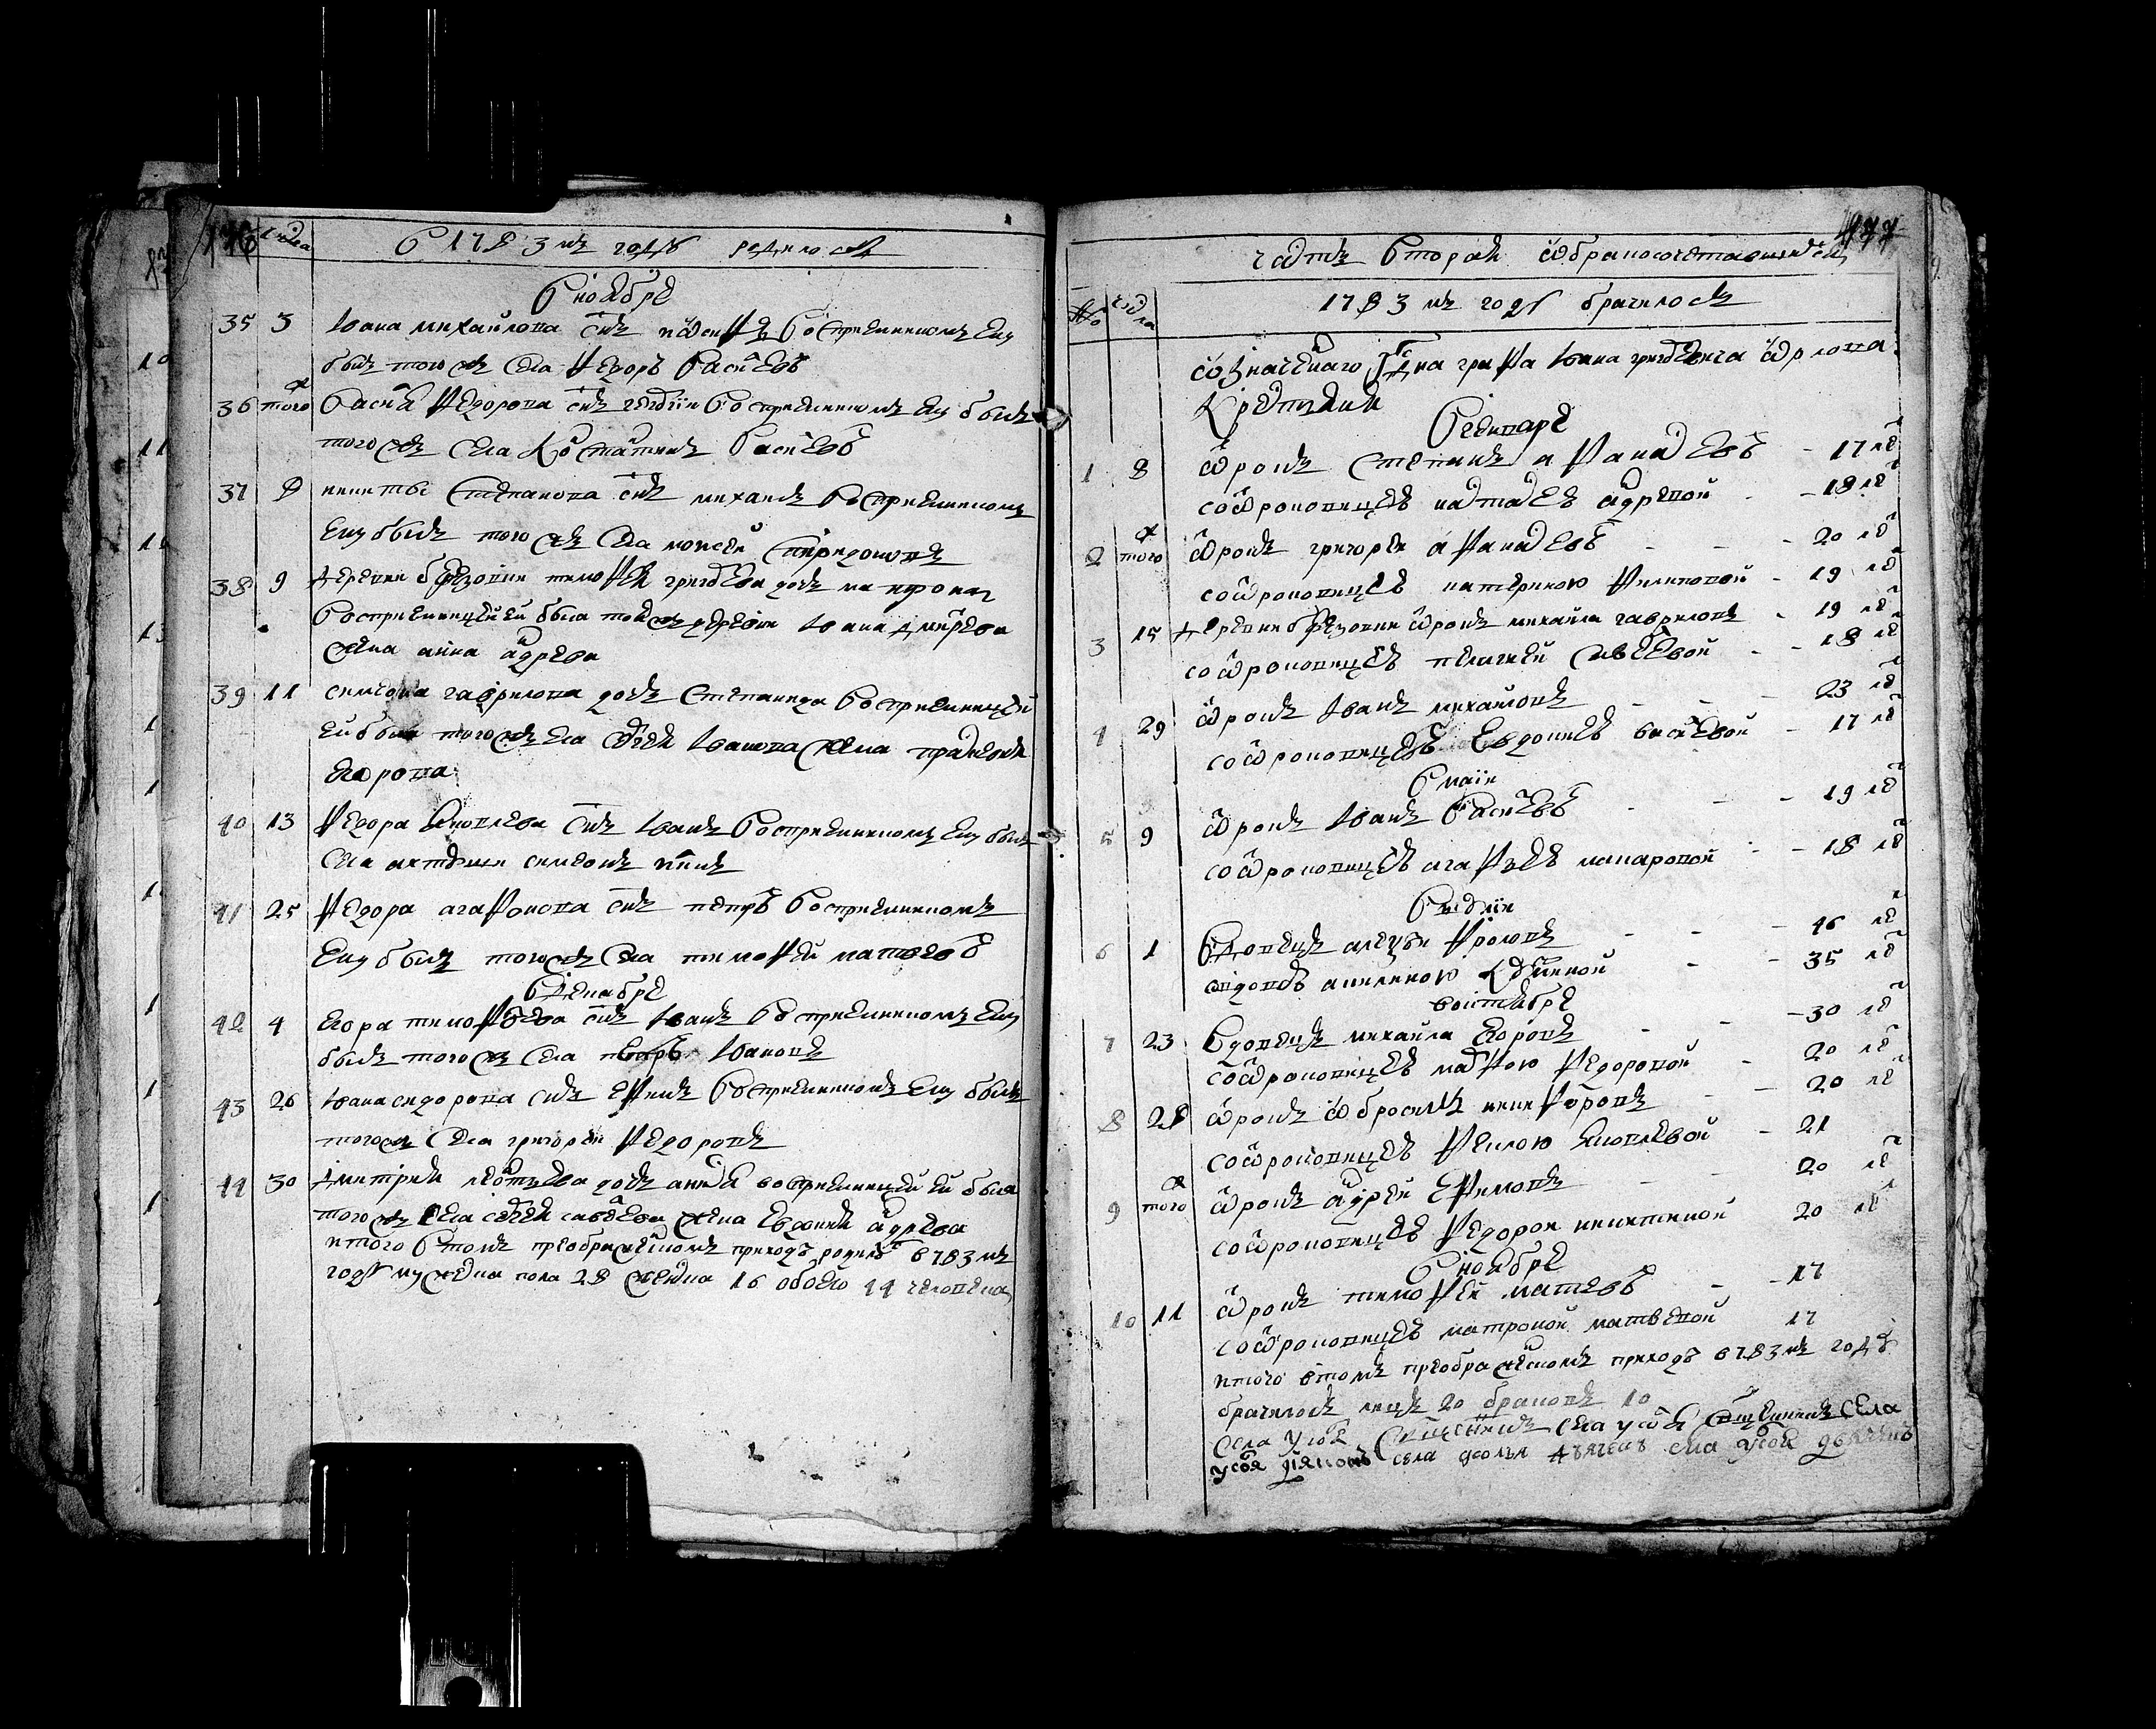 176 числа В 1783 мъ году родилося
В ноябре
35 3 Ивана михайлова снъ иосифъ восприемникомъ ему
былъ того жъ села Федоръ Василевъ
36 того ж Василя Федорова снъ восприемникомъ ему былъ
того жъ села Костатинъ Василевъ
37 8 никиты Степанова снъ михаилъ восприемникомъ
ему былъ того жъ села моисей Спиридоновъ
38 9 деревни березовки тимофея григорева дочь матрона
восприемницей ей была той жъ деревни Ивана дмитрева
жена анна андрева
39 11 симеона гаврилова дочь Степанида восприемницей
ей была того жъ села Иванова жена прасковя
Егорова
40 13 Федора Яковлева снъ Иванъ восприемникомъ ему былъ
села симеонъ
41 25 Федора агафонова снъ петръ восприемникомъ
ему былъ того жъ села тимофей матвевъ
В декабре
42 4 Егора тимофеева снъ Иванъ восприемникомъ ему
былъ того жъ села Ивановъ
43 26 Ивана сидорова снъ Ефимъ восприемникомъ ему былъ
того жъ села григорей Федоровъ
44 30 дмитрия леонтева дочь восприемницей ей была
того жъ села савелева жена Евдокия андрева
итого в томъ преображенскомъ приходе родилос в 783 мъ
году мужеска пола 28 женска 16 обоего 44 человека
177
часть вторая о бракосочетавшихся
№ числа 1783 мъ году брачилось
означенаго гдна графа Ивана григоревича орлова
крестьяня
В генваре
1 8 отрокъ Степанъ афанасевъ - 17 ле
со отроковицею наталею андревой - 18 ле
2 того ж отрокъ григорей афанасевъ - 20 ле
со отроковицею катериною Филиповой - 19 ле
3 15 деревни березовки отрокъ михайла гавриловъ - 19 ле
со отроковицею пелагией савелевой - 18 ле
4 29 отрокъ Иванъ михайловъ - 23 ле
со отроковицею Евдокиею василевой - 17 ле
В маии
5 9 отрокъ Иванъ Василевъ - 19 ле
со отроковицею агафьею макаровой - 18 ле
В июлии
6 1 Вдовецъ алеѯей Фроловъ - 46 ле
вдовою акилиною - 35 ле
воктябре
7 23 Вдовецъ михайла Егоровъ - 30 ле
со отроковицею марфою Федоровой - 20 ле
8 28 отрокъ обросимъ никифоровъ - 20 ле
со отроковицею Феклою Яковлевой - 21
9 того ж отрокъ андрей Ефимовъ - 20 ле
со отроковицею Федорою никитиной 20 ле
В ноябре
10 11 отрокъ тимофей матвевъ - 17
со отроковицею матроной матвевой 17
итого втомъ преображенскомъ приходе в 783 мъ годе
брачилось лицъ 20 браковъ 10
Села Усоля Священникъ села усоля Священникъ Села
усоля диаконъ села усолья дьячекъ села усоля дьячекъ